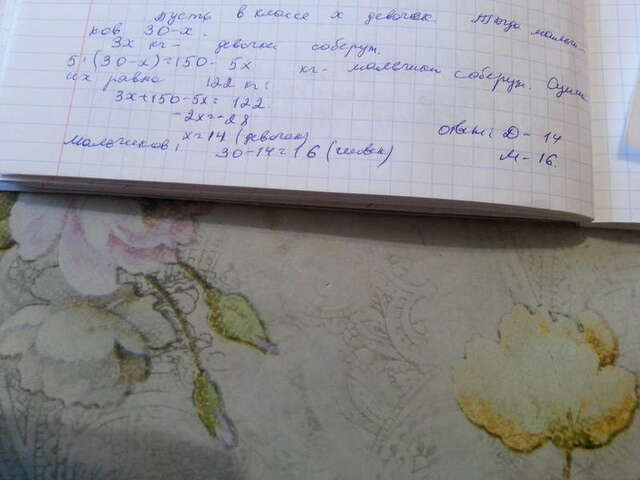 Пусть в классе x девочек. Тогда мальчи-
ков 30-x.
3x кг- девочки соберут.
5·(30-x)=150-5x кг- мальчики соберут. Сумма
их равна 122 кг:
3x+150-5x=122.
-2x=-28
x=14 (девочек)
Мальчиков: 30-14=16 (человек)
Ответ: Д-14
М-16.